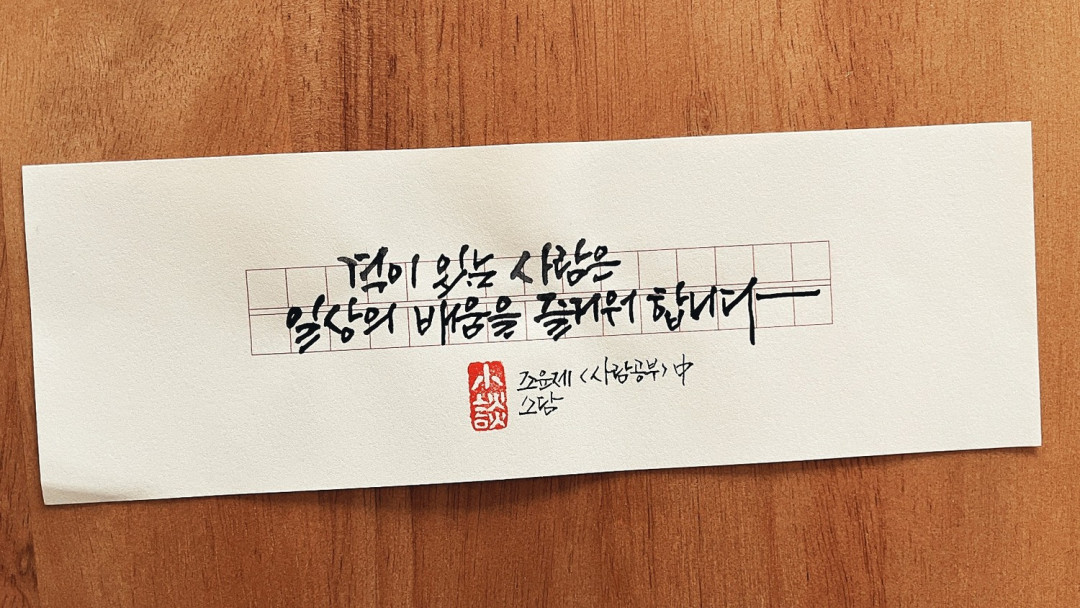 격이 있는 사람은
일상의 배움을 즐거워 합니다
小談
조윤제 <사람공부> 中
소담